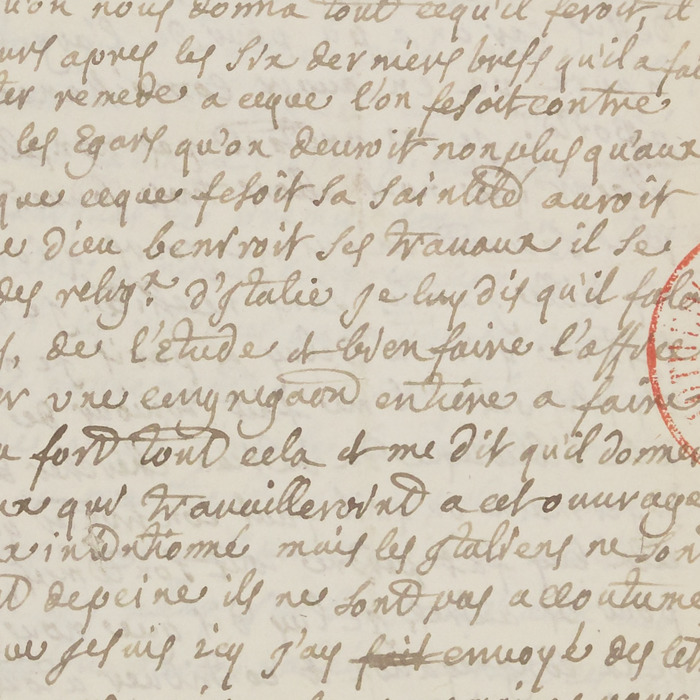 qu'on nous donna tout cequ'il feroit, il
apres les six derniers brefs qu'il a fai
ter remede a ceque l'on fesoit contre
les Egars qu'on deuroit non plus qu'aux
que ceque fesoit sa sainteté auroit
e dieu beniroit ses travaux il se
des relig.x d'Italie je luy dis qu'il falo
s, de l'Etude et bien faire l'office
er une congregaon entiere a faire
fort tout cela et me dit qu'il donne
ux qui travailleroint a cet ouurage
x intentionné mais les Italiens ne son
t depeine ils ne sont pas accoutume
que je suis icy j'ay fait envoyé des let